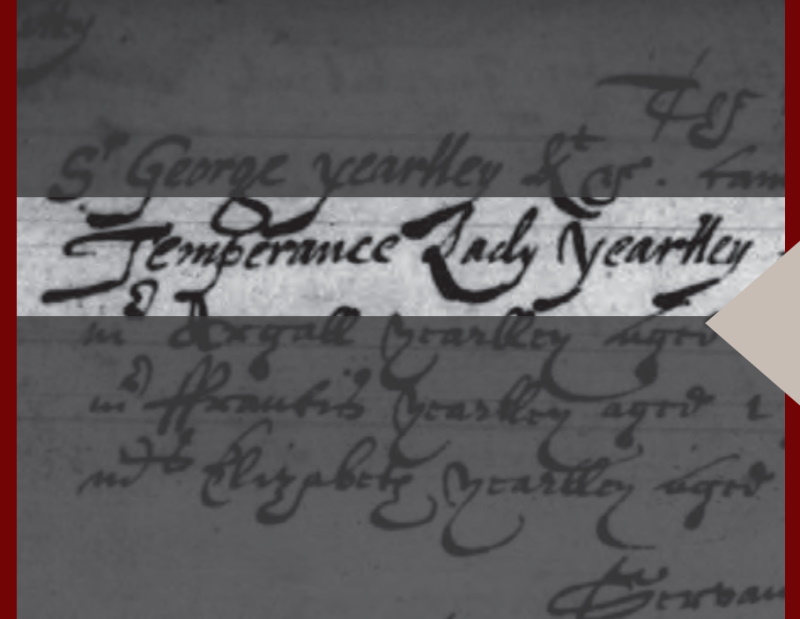 Sr George yeardley &c.
Temperance Lady Yeardley
mr Argall Yeardley aged
mr ffrancis Yeardley aged 1
mrs Elizabeth Yeardley aged
Servan